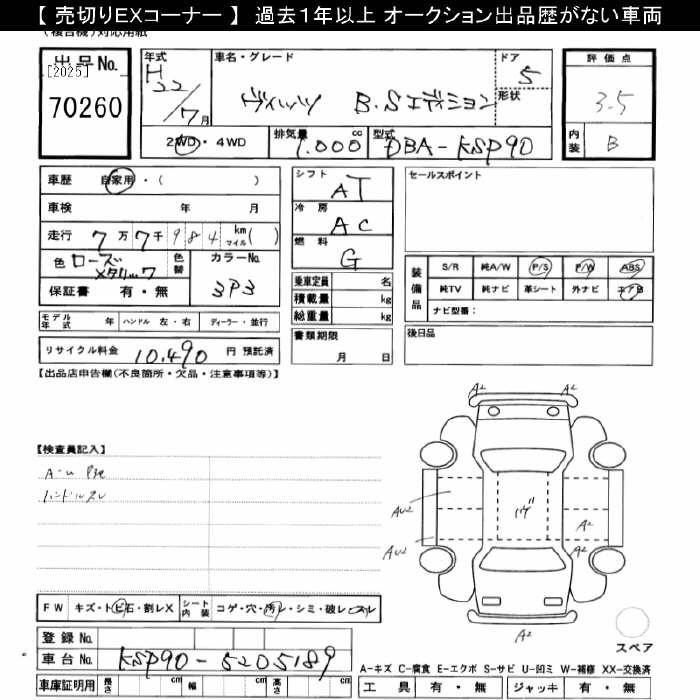 【 売切りEXコーナー 】 過去１年以上 オークション出品歴がない車両
(複合機)対応用紙
出品No.
[2025]
70260
年式
H
22/7月
車名・グレード
ヴィッツ B.Sエディション
ドア
5
形状
2WD・4WD
排気量
1.000cc
型式
DBA-KSP90
評価点
3.5
内装
B
車歴 自家用・( )
車検 年 月
走行 7万7千984 km マイル( )
色 ローズメタリック
色替
カラーNo.
3P3
保証書 有・無
シフト
AT
冷房
AC
燃料
G
乗車定員 名
積載量 kg
総重量 kg
セールスポイント
装備品
S/R 純A/W P/S P/W ABS
純TV 純ナビ 革シート 外ナビ エアB
ナビ型番:
モデル年式 年 ハンドル 左・右 ディーラー・並行
リサイクル料金 10,490 円 預託済
書類期限
月 日
後日品
【出品店申告欄(不良箇所・欠品・注意事項等)】
【検査員記入】
ハンドルスレ
A2 A2
AU2
AU2
A2
A2
A2
スペア
FW キズ・トビ石・割レX
シート内装 コゲ・穴・汚レ・シミ・破レ・スレ
登録No.
車台No. KSP90-5205189
車庫証明用 長さ cm 幅 cm 高さ cm
A-キズ C-腐食 E-エクボ S-サビ U-凹ミ W-補修 XX-交換済
工具 有・無 ジャッキ 有・無